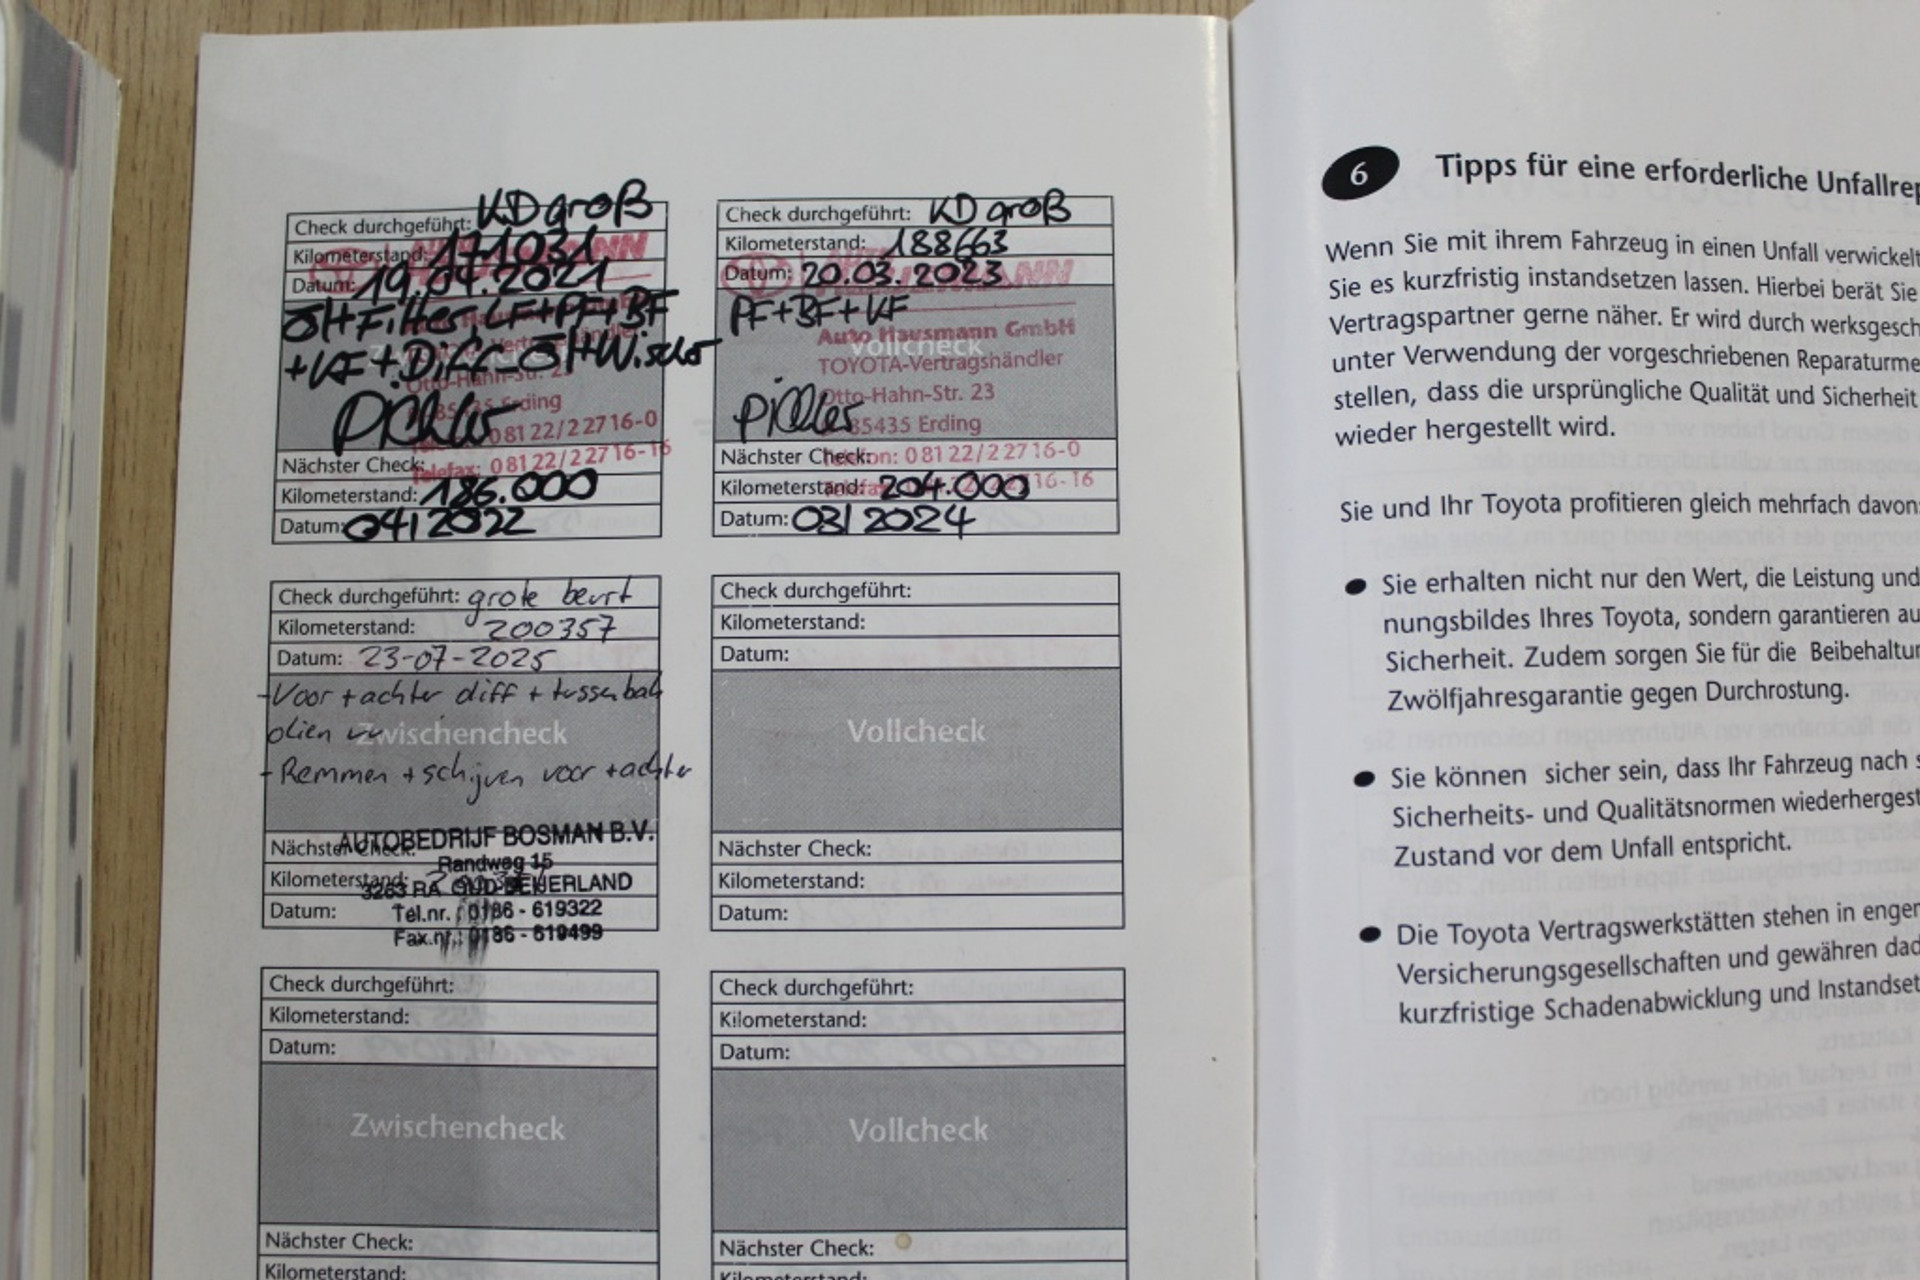 Check durchgeführt: KD groß
Kilometerstand: 171031
Datum: 19.04.2021
Öl+Filter, LF+PF+BF
+KF+Diff-Öl+Wischer
Zwischencheck
Otto-Hahn-Str. 23
85435 Erding
Pichler
08122/22716-0
Nächster Check:
Telefax: 08122/22716-16
Kilometerstand: 186.000
Datum: 04/2022
Check durchgeführt: KD groß
Kilometerstand: 188663
Datum: 20.03.2023
PF+BF+KF
Auto Hausmann GmbH
Vollcheck
TOYOTA-Vertragshändler
Otto-Hahn-Str. 23
Pichler
85435 Erding
Nächster Check:
Telefon: 08122/22716-0
Kilometerstand: 204.000
Datum: 03/2024
Check durchgeführt: grote beurt
Kilometerstand: 200357
Datum: 23-07-2025
-Voor + achter diff + tussenbak
olien
Zwischencheck
- Remmen + schijven voor + achter
Nächster Check:
AUTOBEDRIJF BOSMAN B.V.
Randweg 15
Kilometerstand:
3263 RA OUD-BEIJERLAND
Datum:
Tel.nr. : 0186 - 619322
Fax.nr. : 0186 - 619499
Check durchgeführt:
Kilometerstand:
Datum:
Vollcheck
Nächster Check:
Kilometerstand:
Datum:
Check durchgeführt:
Kilometerstand:
Datum:
Zwischencheck
Nächster Check:
Kilometerstand:
Check durchgeführt:
Kilometerstand:
Datum:
Vollcheck
Nächster Check:
Kilometerstand:
6 Tipps für eine erforderliche Unfallrep
Wenn Sie mit ihrem Fahrzeug in einen Unfall verwickelt
Sie es kurzfristig instandsetzen lassen. Hierbei berät Sie
Vertragspartner gerne näher. Er wird durch werksgesch
unter Verwendung der vorgeschriebenen Reparaturme
stellen, dass die ursprüngliche Qualität und Sicherheit
wieder hergestellt wird.
Sie und Ihr Toyota profitieren gleich mehrfach davon
● Sie erhalten nicht nur den Wert, die Leistung und
nungsbildes Ihres Toyota, sondern garantieren au
Sicherheit. Zudem sorgen Sie für die Beibehaltun
Zwölfjahresgarantie gegen Durchrostung.
● Sie können sicher sein, dass Ihr Fahrzeug nach s
Sicherheits- und Qualitätsnormen wiederhergest
Zustand vor dem Unfall entspricht.
● Die Toyota Vertragswerkstätten stehen in enger
Versicherungsgesellschaften und gewähren dad
kurzfristige Schadenabwicklung und Instandset